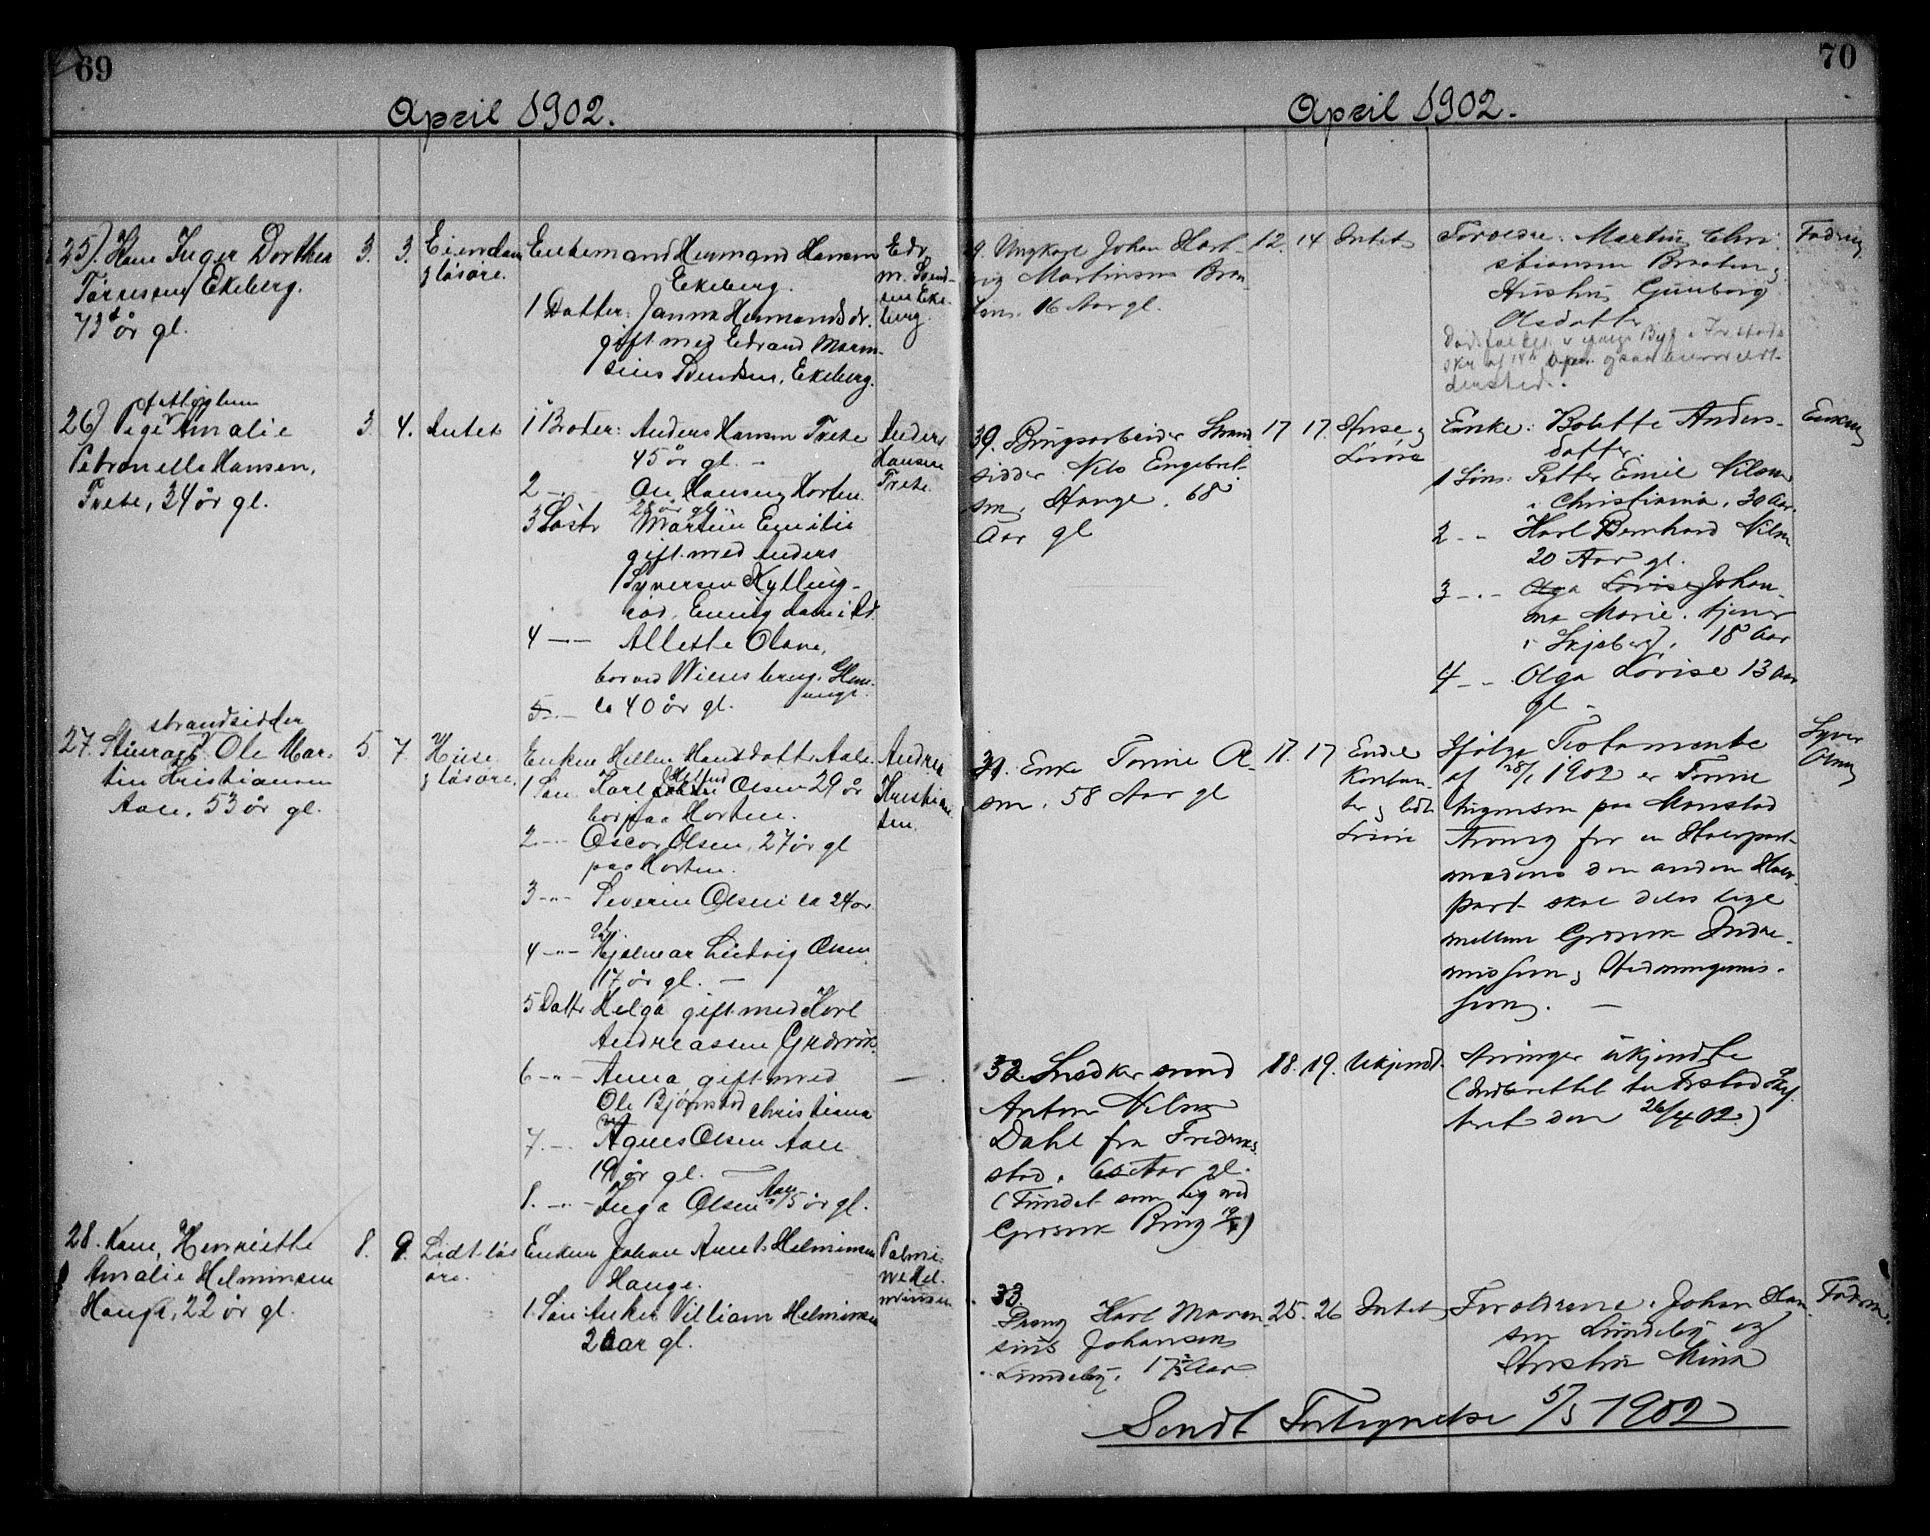 69
April 1902.
25). Kone Inger Dorthea
Tørresen, Ekeberg.
73 år gl.
3.
3.
Eiendom
g løsøre.
Enkemand Hermand Hansen
Ekeberg.
1 Datter: Janna Hermandsdr.
gift med Edvard Marin-
sius Svendsen, Ekeberg.
Edv.
m. Svend-
sen Eke-
berg.
26) Pige Amalie
Petronella Hansen,
Tvete, 34 år gl.
3.
4.
Intet
1 Broder: Anders Hansen Tvete
45 år gl. -
2 - Ole Hansen, Horten
28 år gl.
3 Søstr Martine Emilie
gift med Anders
Syversen Kylling-
4 - Allette Olava,
40 år gl.
Anders
Hansen
Tvete.
strandsidder
27. Ole Mar-
tin Kristiansen
Aale, 53 år gl.
5
7.
Huse
g løsøre.
Enken Helene Hansdatter Aale
1. Søn Karl Olsen 29 år
bor paa Horten.
2 - Oscar Olsen, 27 år gl
paa Horten.
3 - Severin Olsen ca 24 år
gl.
4 - Hjalmar Ludvig Olsen
17 år gl. -
5 Dattr Helga gift med Karl
Andreassen Græsvik.
6 - Anna gift med
Ole Bjørnstad Christiania
7. - Agnes Olsen Aale
19 år gl. -
8. - Inga Olsen Aale 15 år gl.
Andrea
Kristian-
sen.
28. Kone, Henriette
Amalie Helminsen
Hauge, 22 år gl.
8.
9.
Lidt løs
øre.
Enkem Johan Helminsen
Hauge.
1. Søn: Anker Villiam Helminsen
2 aar gl.
Palmi-
ne Hel-
minsen
70
April 1902.
29. Ungkarl Johan Hart-
vig Martinsen Braa-
ten. 16 Aar gl.
12.
14
Intet
Forældre: Martin Chri-
stiansen Braaten g
Hustru Gunborg
Olsdatter
Fadren
30. Brugsarbeider Strand
sidder Nils Engebret-
sen, Hauge. 68
Aar gl
17
17.
Huse g
Løsøre
Enke: Bolette Anders-
datter.
1 Søn: Petter Emil Nilsen
i Christiania, 30 Aar.
2 - Karl Bernhard Nilsen
20 Aar gl.
3 - Olga Lovise Johan-
na Marie. tjener
i Skjeberg, 18 Aar
4 - Olga Lovise 13 Aar
gl -
Enken
31. Enke Tonnie A-
sen. 58 Aar gl
17.
17
Endel
Kontan-
ter g lidt
Løsøre
Ifølge Testamente
af 28/1 1902 er Tonnie
paa Monstad
Arving for en Halvpart
medens den anden Halv-
part skal deles lige
mellem Græsvik Indre-
mission g Hedningemis-
sion. -
Syver
Olsen
32. Snedkersvend
Anton Nilsen
Dahl fra Fredriks-
stad, 62 Aar gl.
(Fundet som lig ved
Græsvik Brug)
18.
19.
Ukjendt.
Arvinger ukjendte
(Indberettet til Frstad Skif-
teret den 26/4 02.)
33
Dreng Karl Maren-
sius Johansen
Lundeby. 17 Aar
25.
26
Intet
Forældrene: Johan Han-
sen Lundeby og
Hustru Mina
Fadren.
Sendt Fortegnelse 5/5 1902